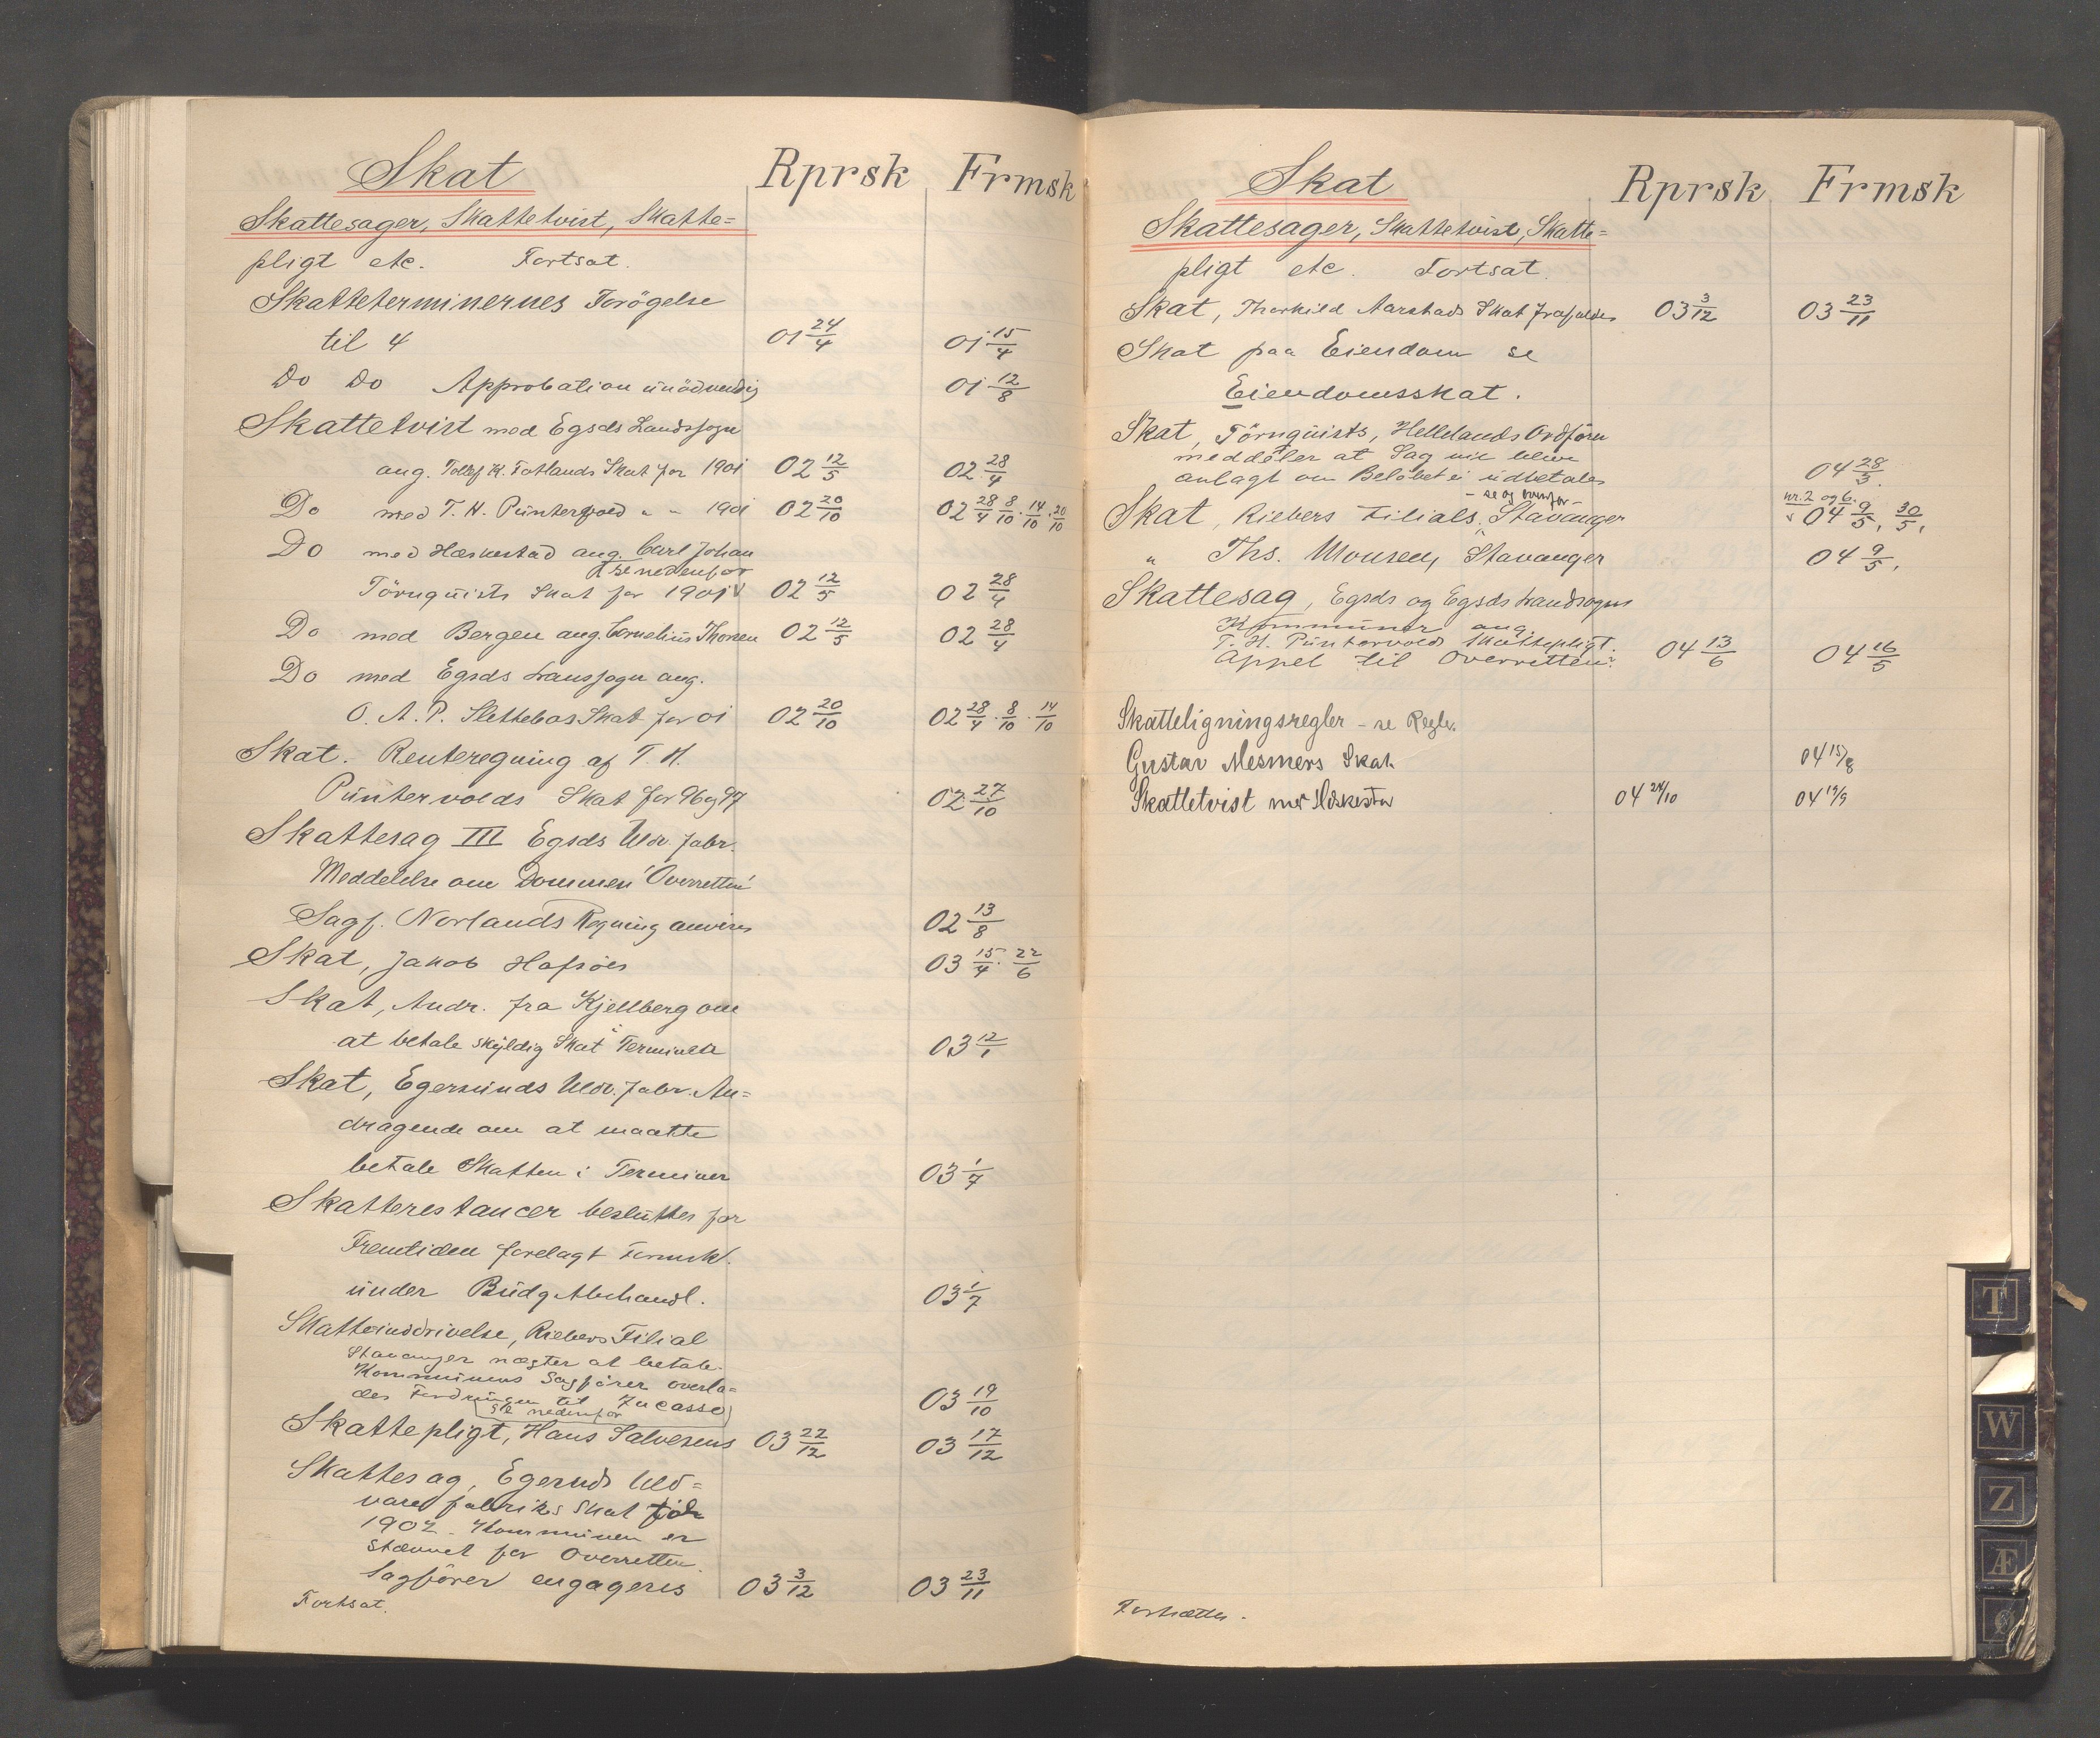 Skat Rprsk Frmsk
Skattesager, Skattetvist, Skatte=
pligt etc. Fortsat.
Skatteterminernes Forögelse
til 4 01 24/4 01 15/4
Do Do Approbation unödvendig 01 12/8
Skattetvist med Egsds Landssogn
ang. Tollef K. Fotlands Skat for 1901 02 12/5 02 28/4
Do med T. H. Puntervold " " 1901 02 20/10 02 28/4 8/10 . 14/10 . 20/10
Do med Heskestad ang. Carl Johan
se nedenfor
Törnquists Skat for 1901 02 12/5 02 28/4
Do med Bergen ang. Cornelius Thorsen 02 12/5 02 28/4
Do med Egsds Landssogn ang.
O. A. P. Slettebös Skat for 01 02 20/10 02 28/4 . 8/10 . 14/10
Skat. Renteregning af T. H.
Puntervolds Skat for 96 og 97 02 27/10
Skattesag III Egsds Uldv. fabr.
Meddelelse om Dommen i Overretten
Sagf. Norlands Regning anvises 02 13/8
Skat, Jakob Hafsöes 03 15/4 . 22/6
Skat, Andr. fra Kjellberg om
at betale skyldig Skat i Terminer 03 12/1
Skat, Egersunds Uldv. fabr. An=
dragende om at maatte
betale Skatten i Terminer 03 1/7
Skatterestancer besluttes for
Fremtiden forelagt Formsk.
under Budgetbehandl. 03 1/7
Skatteinddrivelse, Riebers Filial
Stavanger nægter at betale.
Kommunens Sagförer overla=
des Fordringen til Incasso 03 19/10
(se nedenfor)
Skattepligt, Hans Salvesens 03 22/12 03 17/12
Skattesag, Egersnds Uld=
varefabriks Skat for
1902 - Kommunen er
stævnet for Overretten.
Sagförer engageres 03 3/12 03 23/11
Fortsat.
Skat Rprsk Frmsk
Skattesager, Skattetvist, Skatte=
pligt etc. Fortsat.
Skat, Thorkild Aarstads Skat frafaldes 03 3/12 03 23/11
Skat paa Eiendom se
Eiendomsskat.
Skat, Törnquists, Hellelands Ordförer
meddeler at Sag vil blive
anlagt om Belöbet ei udbetales 04 28/3.
- se og ovenfor - nr. 2 og 6.
Skat, Riebers Filials, Stavanger 04 9/5, 30/5,
" Ths. Monsen, Stavanger 04 9/5,
Skattesag, Egsds og Egsds Landsogns
Kommuner ang.
T. H. Puntervolds Skattepligt.
Appel til Overretten. 04 13/6 04 16/5
Skatteligningsregler - se Regler.
Gustav Mesmers Skat 04 15/8
Skattetvist med Heskestad 04 24/10 04 19/9
Fortsættes.
T
W
Z
Æ
Ø